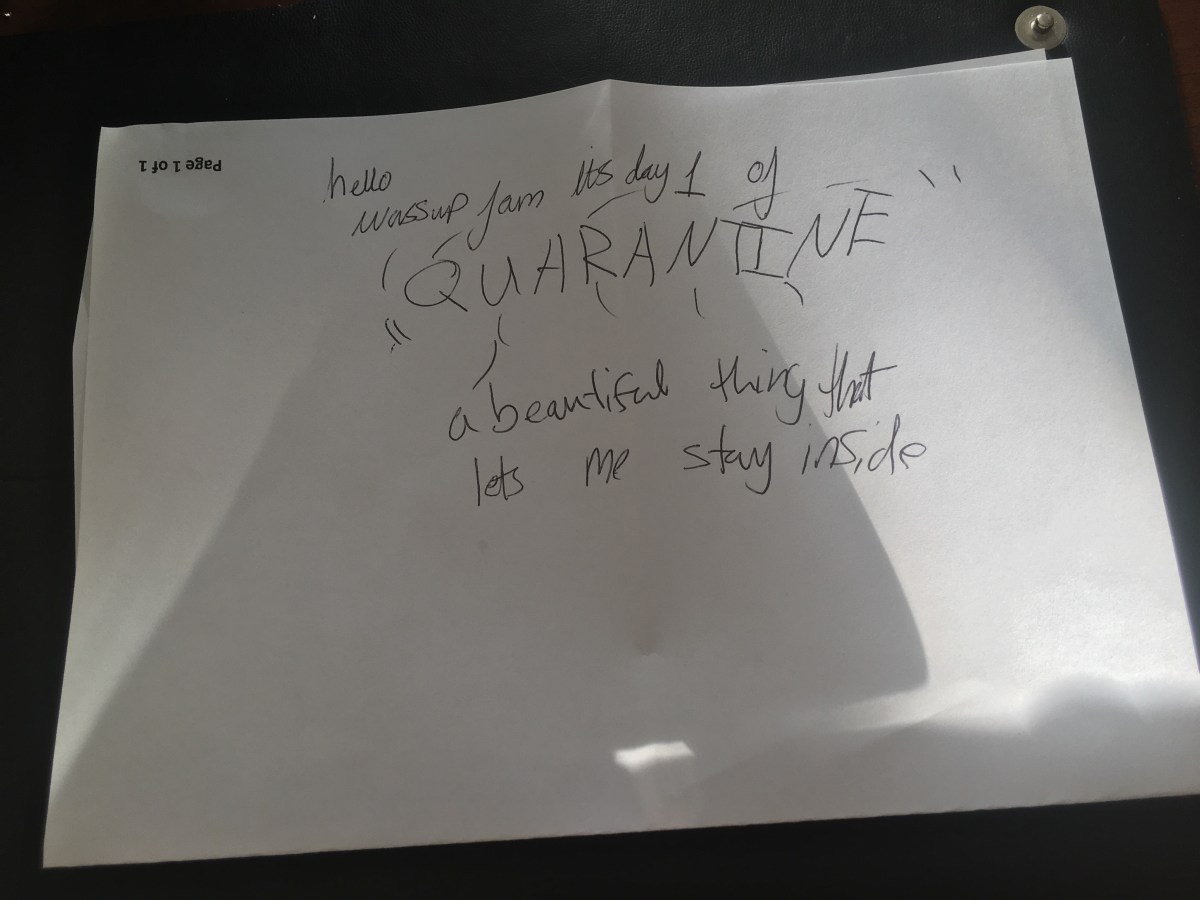 Page 1 of 1
hello
wassup fam its day 1 of
"QUARANTINE"
a beautiful thing that
lets me stay inside